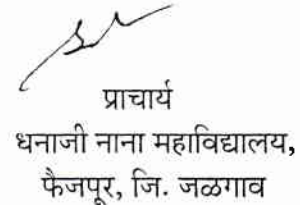 प्राचार्य
धनाजी नाना महाविद्यालय,
फैजपूर, जि. जळगाव